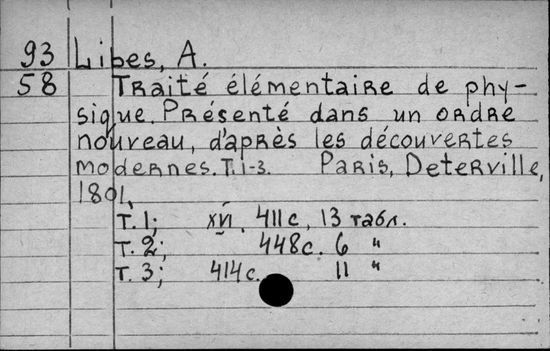 93 Libes, A.
58 Traité élémentaire de phy-
sique. Présenté dans un ordre
nouveau, d'après les découvertes
modernes. T. 1-3. Paris, Deterville,
1801.
Т. 1; XVI, 411 с., 13 табл.
Т. 2; 448 с. 6 "
Т. 3; 414 с. 11 "